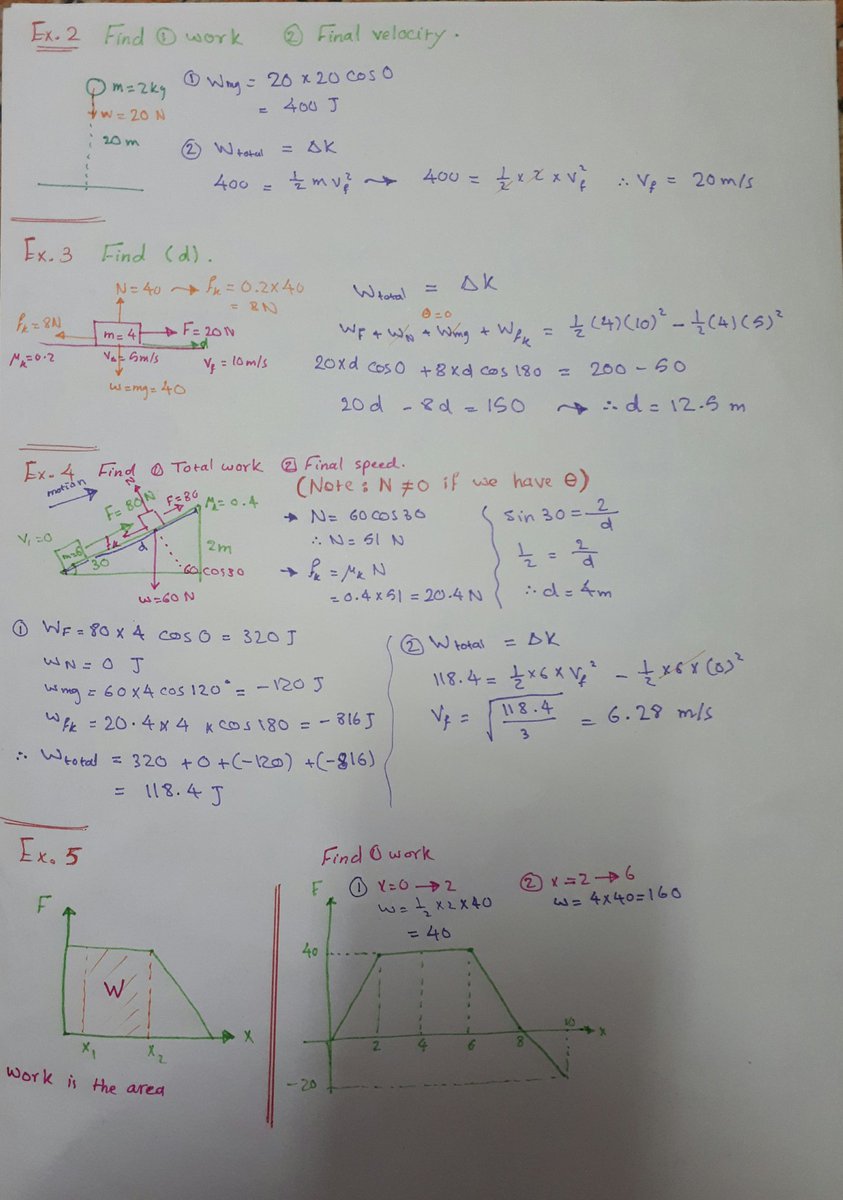 Ex. 2 Find ① work ② Final velocity.
m=2kg
w=20 N
20m
① Wmg = 20 × 20 cos 0
= 400 J
② Wtotal = ΔK
400 = ½ m vf² → 400 = ½ × 2 × vf² ∴ Vf = 20 m/s
Ex. 3 Find (d).
N=40 → fk = 0.2×40
= 8N
fk=8N
m=4
F=20N
d
μk=0.2
V₁=5m/s
Vf=10m/s
w=mg=40
Wtotal = ΔK
θ=0
WF + WN + Wmg + Wfk = ½(4)(10)² - ½(4)(5)²
20×d cos0 + 8×d cos 180 = 200 - 50
20d - 8d = 150 → ∴ d = 12.5 m
Ex. 4 Find ① Total work ② Final speed.
(Note: N ≠ 0 if we have θ)
motion
N
F=80
F=80N
μk=0.4
V₁=0
m=6
fk
d
30
2m
60 cos30
w=60 N
→ N = 60 cos 30
∴ N = 51 N
→ fk = μk N
= 0.4×51 = 20.4 N
sin 30 = 2/d
½ = 2/d
∴ d = 4m
① WF = 80×4 cos 0 = 320 J
WN = 0 J
Wmg = 60×4 cos 120° = -120 J
Wfk = 20.4×4 × cos 180 = -816 J
∴ Wtotal = 320 + 0 + (-120) + (-816)
= 118.4 J
② Wtotal = ΔK
118.4 = ½×6×Vf² - ½×6×(0)²
Vf = √(118.4/3) = 6.28 m/s
Ex. 5
F
W
X₁ X₂ X
Work is the area
Find ① work
① X=0 → 2
W = ½×2×40
= 40
② X=2 → 6
W = 4×40 = 160
F
40
2 4 6 8 10 x
-20